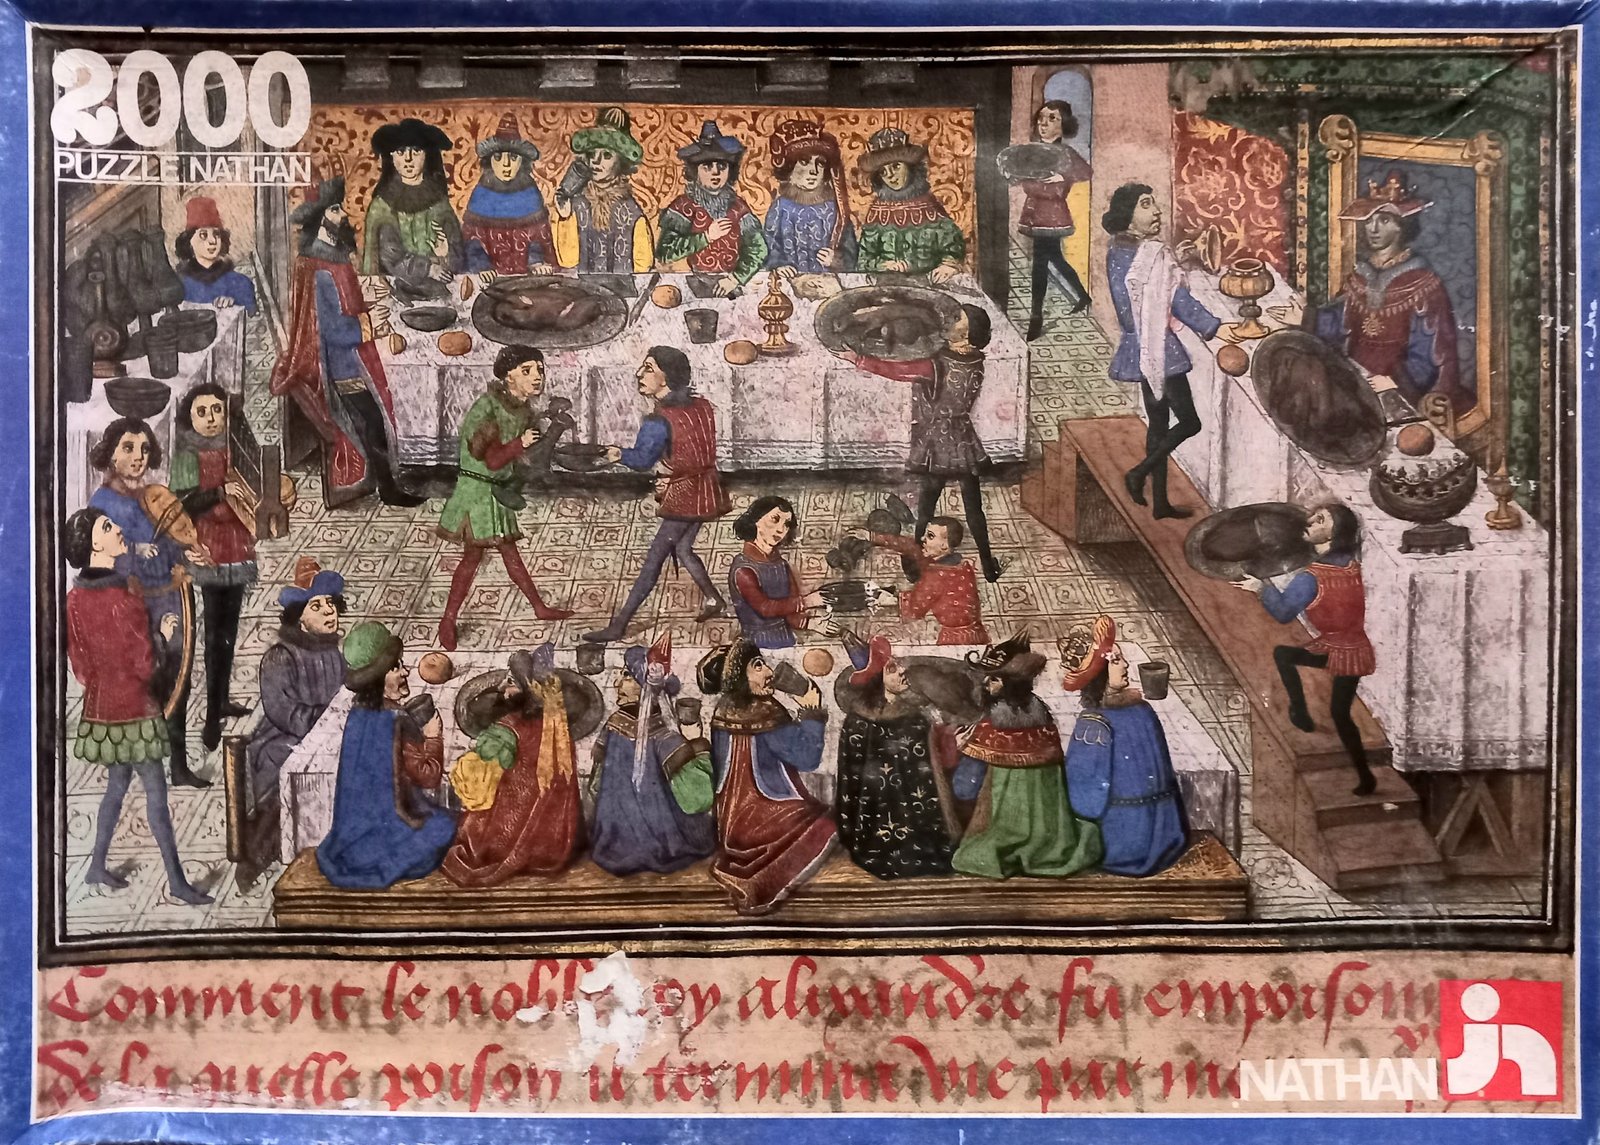 2000
PUZZLE NATHAN
Comment le noble roy alixandre fu empoisonn
De la quelle poison il termina vie par
NATHAN